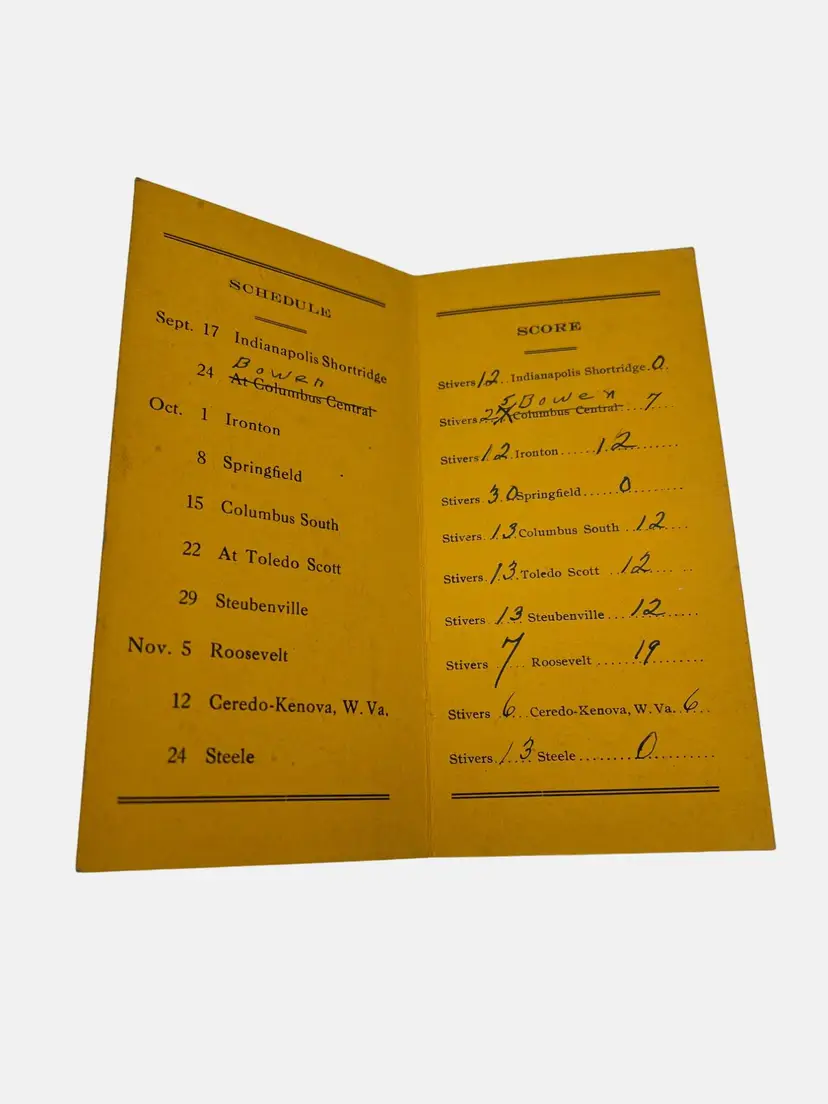 SCHEDULE
Sept. 17 Indianapolis Shortridge
Bowen
24 At Columbus Central
Oct. 1 Ironton
8 Springfield
15 Columbus South
22 At Toledo Scott
29 Steubenville
Nov. 5 Roosevelt
12 Ceredo-Kenova, W. Va.
24 Steele
SCORE
Stivers 12 Indianapolis Shortridge 0
5 Bowen
Stivers 2 Columbus Central 7
Stivers 12 Ironton 12
Stivers 30 Springfield 0
Stivers 13 Columbus South 12
Stivers 13 Toledo Scott 12
Stivers 13 Steubenville 12
Stivers 7 Roosevelt 19
Stivers 6 Ceredo-Kenova, W. Va. 6
Stivers 13 Steele 0